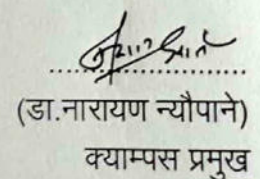 (डा.नारायण न्यौपाने)
क्याम्पस प्रमुख